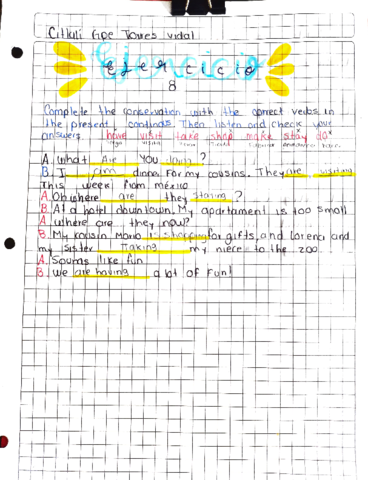 Citlali Gpe Torres vidal
Ejercicio
8
Complete the conservation with the correct verbs in
the present continuos. Then listen and check your
answers. have visit take shop make stay do
A. What Are YOU doing?
B. I dinner for my cousins. They are visiting
This week from México
A. Oh where are they staying?
B. At a hotel downtown. My apartament is too small
A. Where are they now?
B. My cousin Mario is shopping for gifts, and Lorena and
my sister my niece to the zoo
A. Sounds like fun
B. We are having a lot of fun!